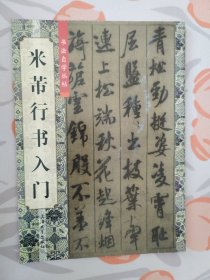 书法自学丛帖
米芾行书入门
青松勁挺姿凌霄恥
屈盤種種出枝葉牽
連上松端秋花起絳烟
旖旎雲錦殷不羞不